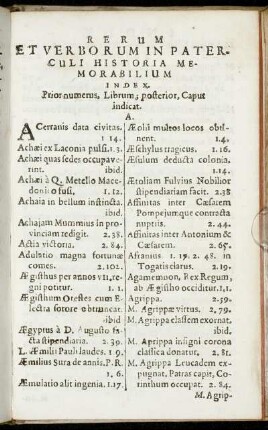 RERUM
ET VERBORUM IN PATER-
CULI HISTORIA ME-
MORABILIUM
INDEX.
Prior numerus, Librum; posterior, Caput
indicat.
A.
ACerranis data civitas.
1 4.
Achæi ex Laconia pulsi. 1.3.
Achæi quas sedes occupave-
rint. ibid
Achæi à Q. Metello Mace-
donico fusi, 1. 12.
Achaia in bellum instincta.
ibid.
Achajam Mummius in pro-
vinciam redigit. 2. 38.
Actia victoria. 2. 84.
Adulatio magna fortunæ
comes. 2. 102.
Ægisthus per annos VII, re-
gni potitur. 1. 1.
Ægisthum Orestes cum E-
lectra sorore obtruncat.
ibid
Ægyptus à D. Augusto fa-
cta stipendiaria. 2. 39.
L. Æmilii Pauli laudes. 1 9.
Æmilius Sura de annis. P.R.
1. 6.
Æmulatio alit ingenia. 1.17.
Æolii multos locos obti-
nent. 1.4.
Æschylus tragicus. 1. 16.
Æsulum deducta colonia.
1. 14.
Ætoliam Fulvius Nobilior
stipendiariam facit. 2. 38
Affinitas inter Cæsarem
Pompejumque contracta
nuptiis. 2. 44.
Affinitas inter Antonium &
Cæsarem. 2. 65.
Afranius 1. 17. 2. 48. in
Togatis clarus. 2. 19.
Agamemnon, Rex Regum,
ab Ægistho occiditur. 1.1.
Agrippa. 2. 59.
M. Agrippæ virtus. 2. 79.
M. Agrippa classem exornat.
ibid.
M. Agrippa insigni corona
classica donatur, 2. 81.
M. Agrippa Leucadem ex-
pugnat, Patras capit, Co-
rinthum occupat. 2. 84.
M. Agrip-